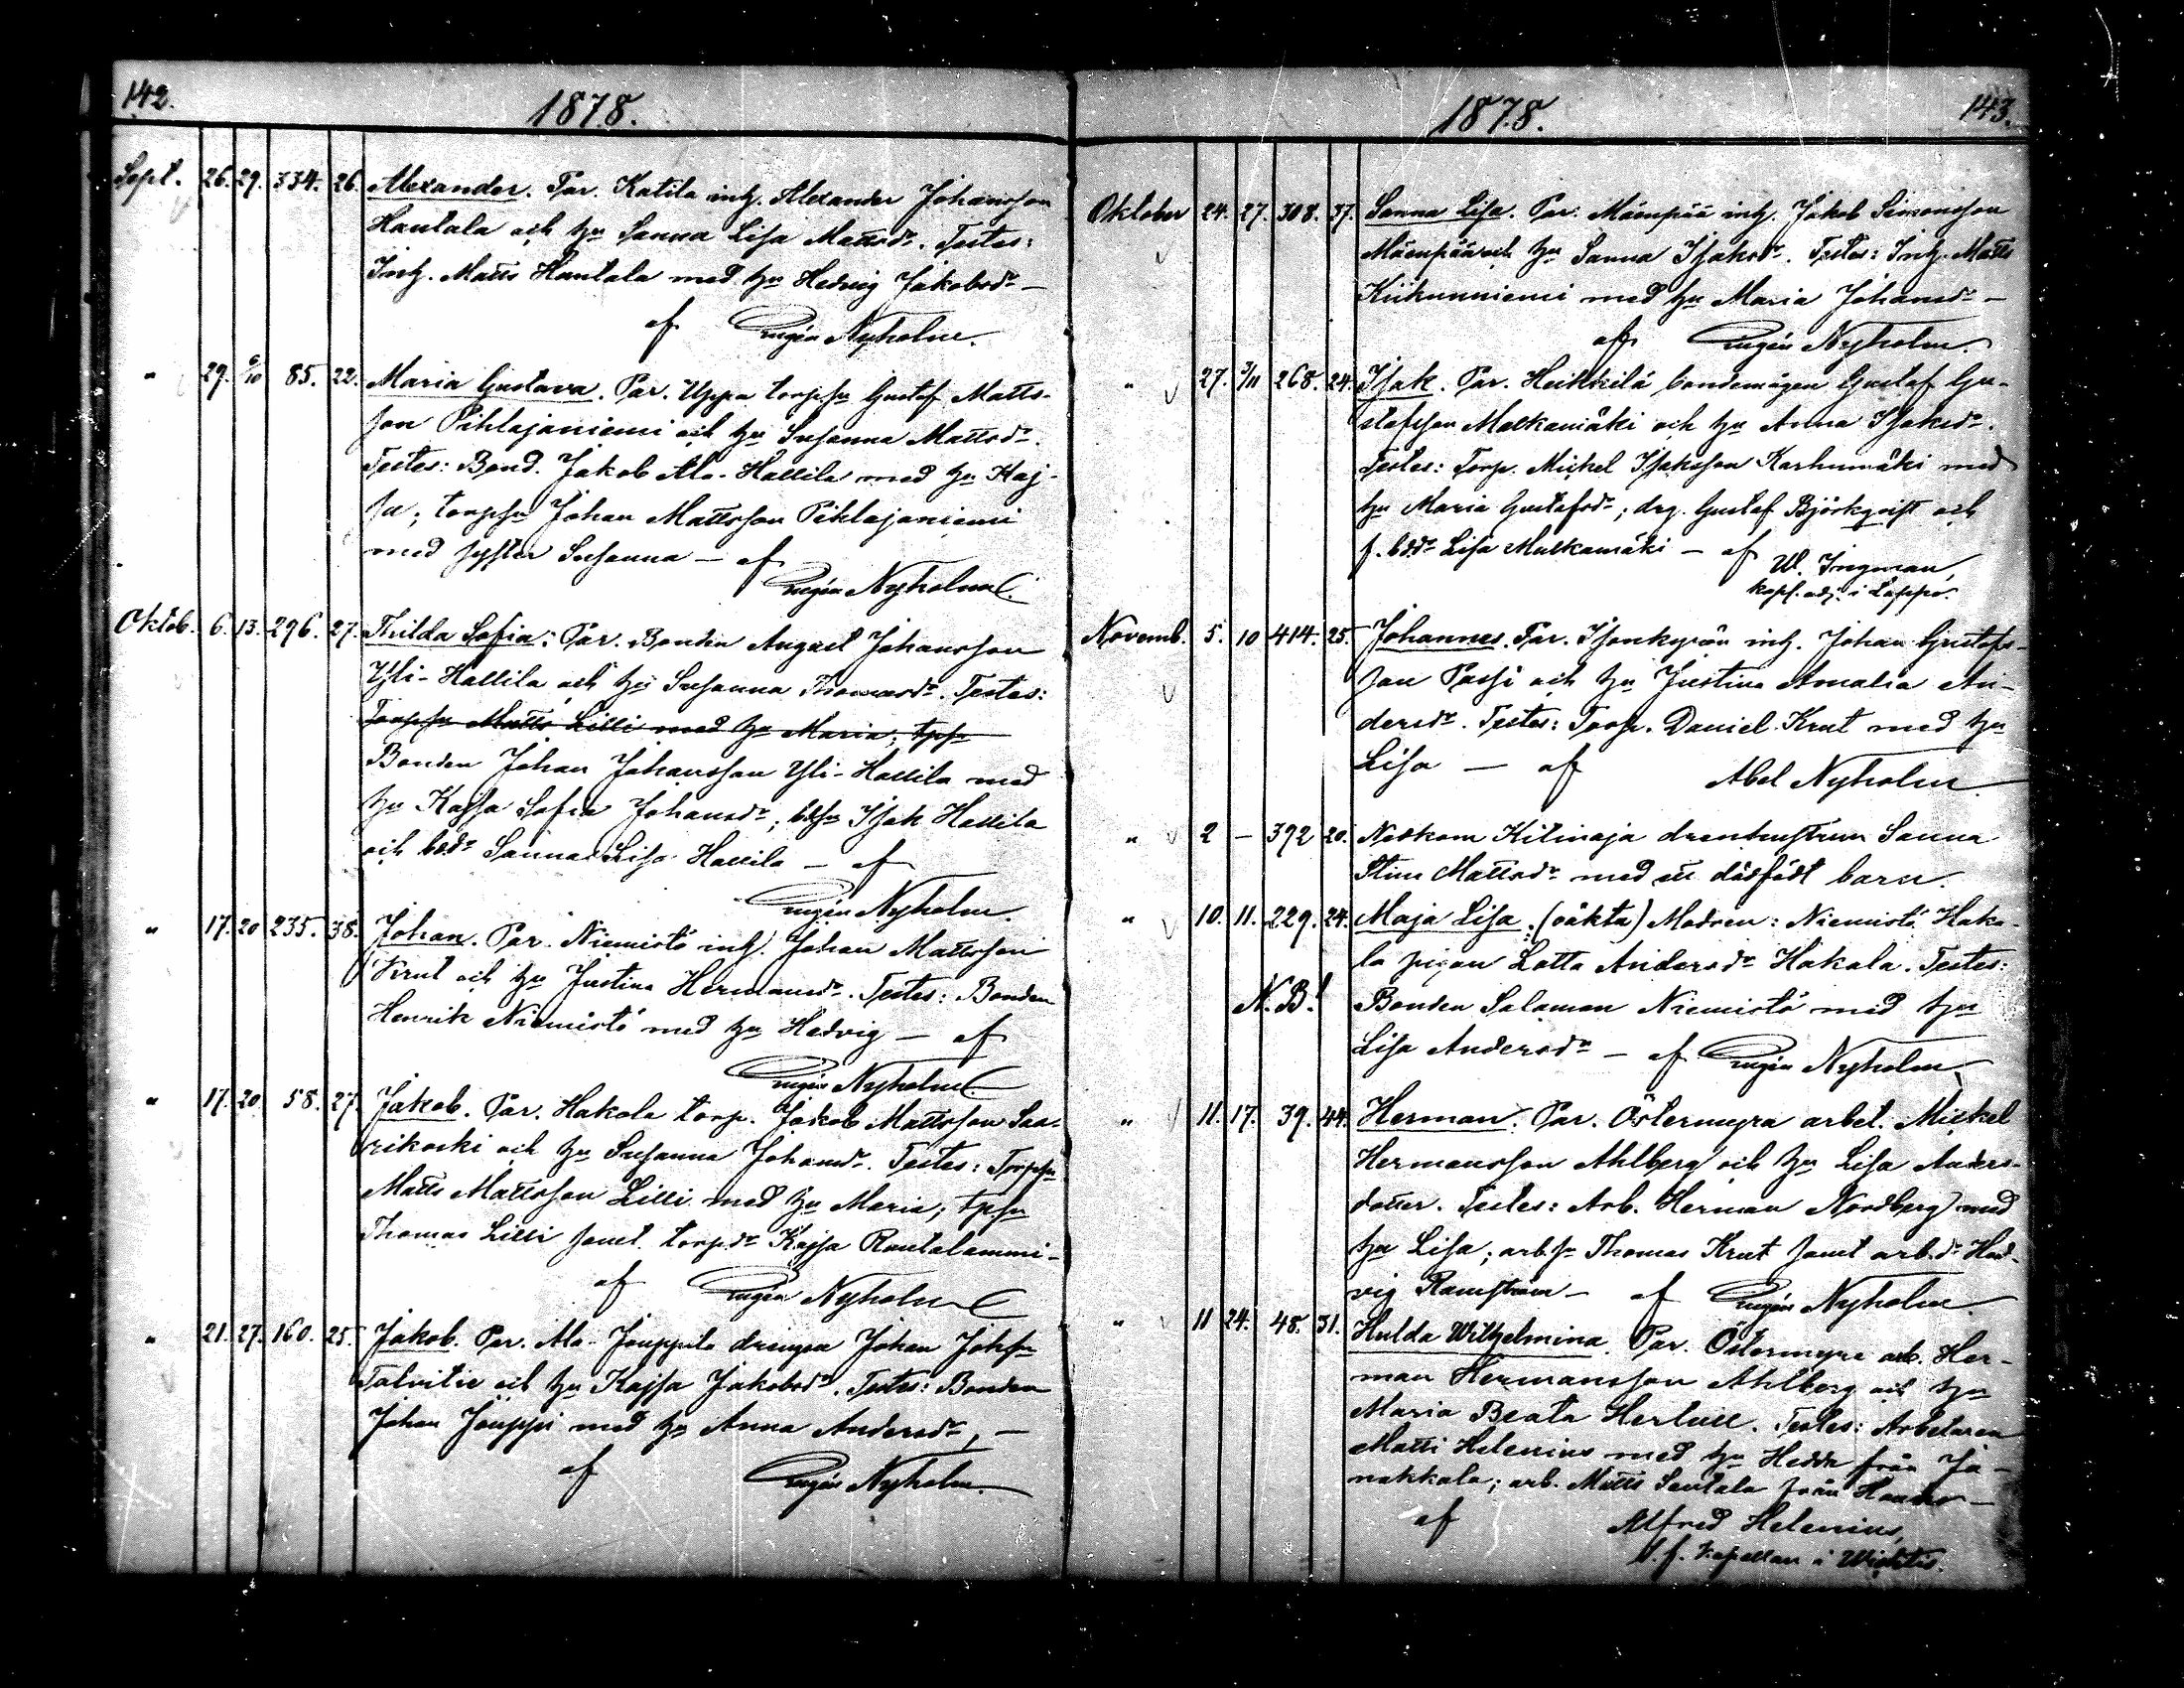 142.
1878.
Sept. 26. 29. 334. 26. Alexander. Par. Katila inh. Alexander Johansson
Hautala och hu Sanna Lisa Mattsdr. Testes:
Inh. Matts Hautala med hu Hedvig Jakobsdr —
af Eugén Nyholm.
" 29. 6/10 85. 22. Maria Gustava. Par. Uppa torpsn Gustaf Matts-
son Pihlajaniemi och hu Susanna Mattsdr.
Testes: Bond. Jakob Ala-Hallila med hu Kaj-
sa; torpsn Johan Mattsson Pihlajaniemi
med syster Susanna — af
Eugén Nyholm.
Oktob. 6. 13. 296. 27. Thilda Sofia: Par. Bonden August Johansson
Yli-Hallila och hu Susanna Thomasdr. Testes:
Torpsn Matts Lilli med hu Maria; tpsn
Bonden Johan Johansson Yli-Hallila med
hu Kajsa Sofia Johansdr; bdsn Isak Hallila
och bddr Sanna Lisa Hallila — af
Eugén Nyholm.
" 17. 20 235. 38. Johan. Par. Niemistö inh. Johan Mattsson
Krut och hu Justina Hermansdr. Testes: Bonden
Henrik Niemistö med hu Hedvig — af
Eugén Nyholm.
" 17. 20 58. 27. Jakob. Par. Hakola torp. Jakob Mattsson Saa-
rikoski och hu Susanna Johansdr. Testes: Torpsn
Matts Mattsson Lilli med hu Maria; tpsn
Thomas Lilli samt torpdr Kajsa Rantalammi —
af Eugén Nyholm
" 21. 27. 160. 25. Jakob. Par. Ala-Jouppila drengen Johan Johsn
Talvitie och hu Kajsa Jakobsdr. Testes: Bonden
Johan Jouppi med hu Anna Andersdr, —
af Eugén Nyholm.
1878.
143.
Oktober 24. 27. 308. 37. Sanna Lisa. Par: Mäenpää inh. Jakob Simonsson
Mäenpää och hu Sanna Isaksdr. Testes: Inh. Matts
Kiikunniemi med hu Maria Johansdr —
af Eugén Nyholm.
" 27. 3/11 268. 24. Isak. Par. Heikkilä bondemågen Gustaf Gu-
stafsson Malkamäki och hu Anna Isaksdr.
Testes: Torp. Mickel Isaksson Karhumäki med
hu Maria Gustafsdr; drg. Gustaf Björkqvist och
f. bddr Lisa Malkamäki — af
W. Ingman,
kapl. adj. i Lappo.
Novemb. 5. 10 414. 25. Johannes. Par. Isonkyrön inh. Johan Gustafs-
son Passi och hu Justina Amalia An-
dersdr. Testes: Torp. Daniel Krut med hu
Lisa — af Abel Nyholm
" 2 — 392 20. Nedkom Kitinoja drenhustrun Sanna
Stina Mattsdr med ett dödfödt barn.
" 10. 11. 229. 24. Maja Lisa: (oäkta) Modren: Niemistö Hako-
la pigan Lotta Andersdr Hakola. Testes:
N.B! Bonden Salomon Niemistö med hu
Lisa Andersdr — af Eugén Nyholm
" 11. 17. 39. 44. Herman. Par. Östermyra arbet. Mickel
Hermansson Ahlberg och hu Lisa Anders-
dotter. Testes: Arb. Herman Nordberg med
hu Lisa; arb.sn Thomas Krut samt arb.dr Hed-
vig Ramström — af Eugén Nyholm.
" 11 24. 48. 31. Hulda Wilhelmina. Par. Östermyra arb. Her-
man Hermansson Ahlberg och hu
Maria Beata Herlull. Testes: Arbetaren
Matti Helenius med hu Hedda från Ja-
nakkala; arb. Matts Sautala från —
af Alfred Helenius,
V. f. Kapellan i Wichtis.